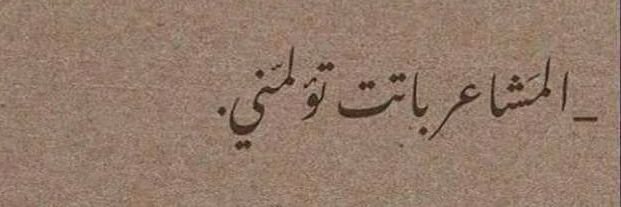 _المَشاعر باتت تؤلمَني.